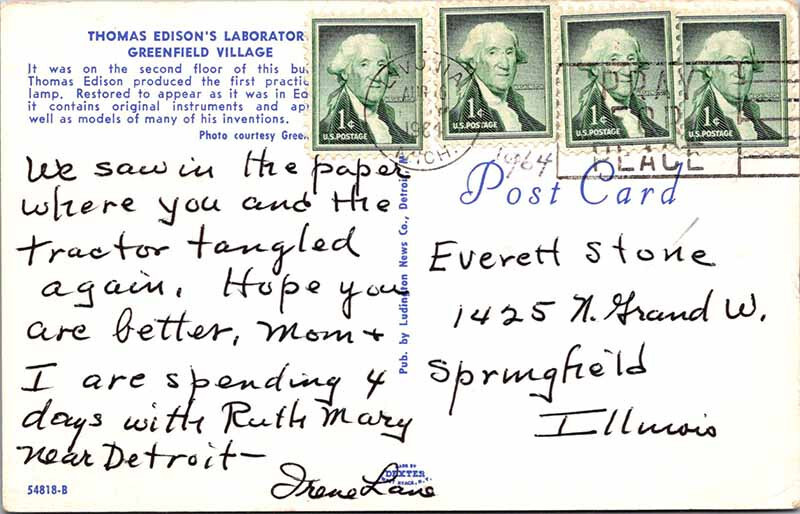 THOMAS EDISON'S LABORATOR
GREENFIELD VILLAGE
It was on the second floor of this bu
Thomas Edison produced the first practi
lamp. Restored to appear as it was in Ed
it contains original instruments and ap
well as models of many of his inventions.
Photo courtesy Green
1¢
U.S. POSTAGE
1¢
U.S. POSTAGE
1¢
U.S. POSTAGE
1¢
U.S. POSTAGE
LIVONIA
MICH.
PRAY
FOR
PEACE
1964
Post Card
We saw in the paper
where you and the
tractor tangled
again. Hope you
are better. Mom +
I are spending 4
days with Ruth Mary
near Detroit—
Irene Lane
Pub. by Ludington News Co., Detroit, M
Everett Stone
1425 N. Grand W.
Springfield
Illinois
54818-B
MADE BY
DEXTER